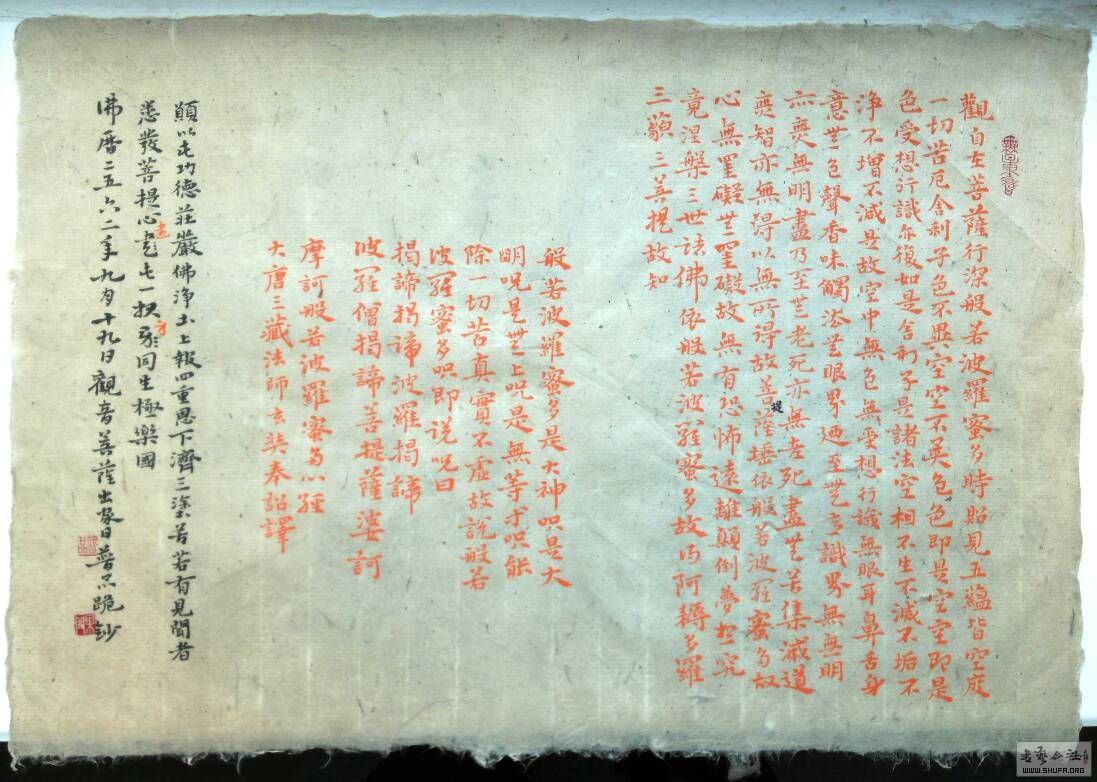 觀自在菩薩行深般若波羅蜜多時照見五蘊皆空度
一切苦厄舍利子色不異空空不異色色即是空空即是
色受想行識亦復如是舍利子是諸法空相不生不滅不垢不
淨不增不減是故空中無色無受想行識無眼耳鼻舌身
意无色聲香味觸法无眼界廼至无意識界無無明
亦無無明盡乃至无老死亦無老死盡无苦集滅道
無智亦無得以無所得故菩提薩埵依般若波羅蜜多故
心無罣礙无罣礙故無有恐怖遠離顛倒夢想究
竟涅槃三世諸佛依般若波羅蜜多故得阿耨多羅
三藐三菩提故知
般若波羅蜜多是大神呪是大
明呪是无上呪是無等等呪能
除一切苦真實不虛故說般若
波羅蜜多呪即說呪曰
揭諦揭諦波羅揭諦
波羅僧揭諦菩提薩婆訶
摩訶般若波羅蜜多心經
大唐三藏法師玄奘奉詔譯
願以此功德莊嚴佛淨土上報四重恩下濟三塗苦若有見聞者
悉發菩提心盡此一報身同生極樂國
佛曆二五六二年九月十九日觀音菩薩出家日普不跪鈔
WWW.SHUFA.ORG